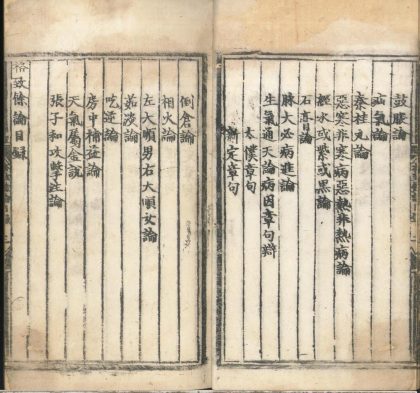 鼓脹論
疝氣論
秦桂丸論
惡寒非寒病惡熱非熱病論
經水或紫或黑論
石膏論
脉大必病進論
生氣通天論病因章句辯
太僕章句
新定章句
倒倉論
相火論
左大順男右大順女論
茹淡論
吃逆論
房中補益論
天氣屬金說
張子和攻擊註論
格致餘論目録